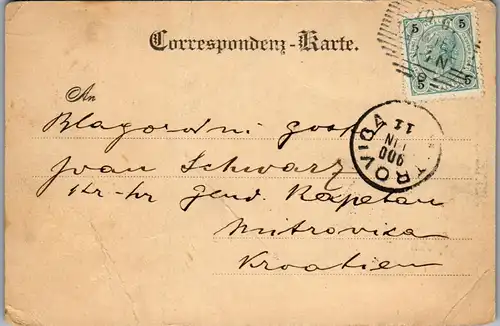 Correspondenz-Karte.
5 5
5 5
An
Blagorodni gosp
Ivan Schwarz
kr. hr. gend. Kapetan
Mitrovica
Kroatien
TROVICA
900
11